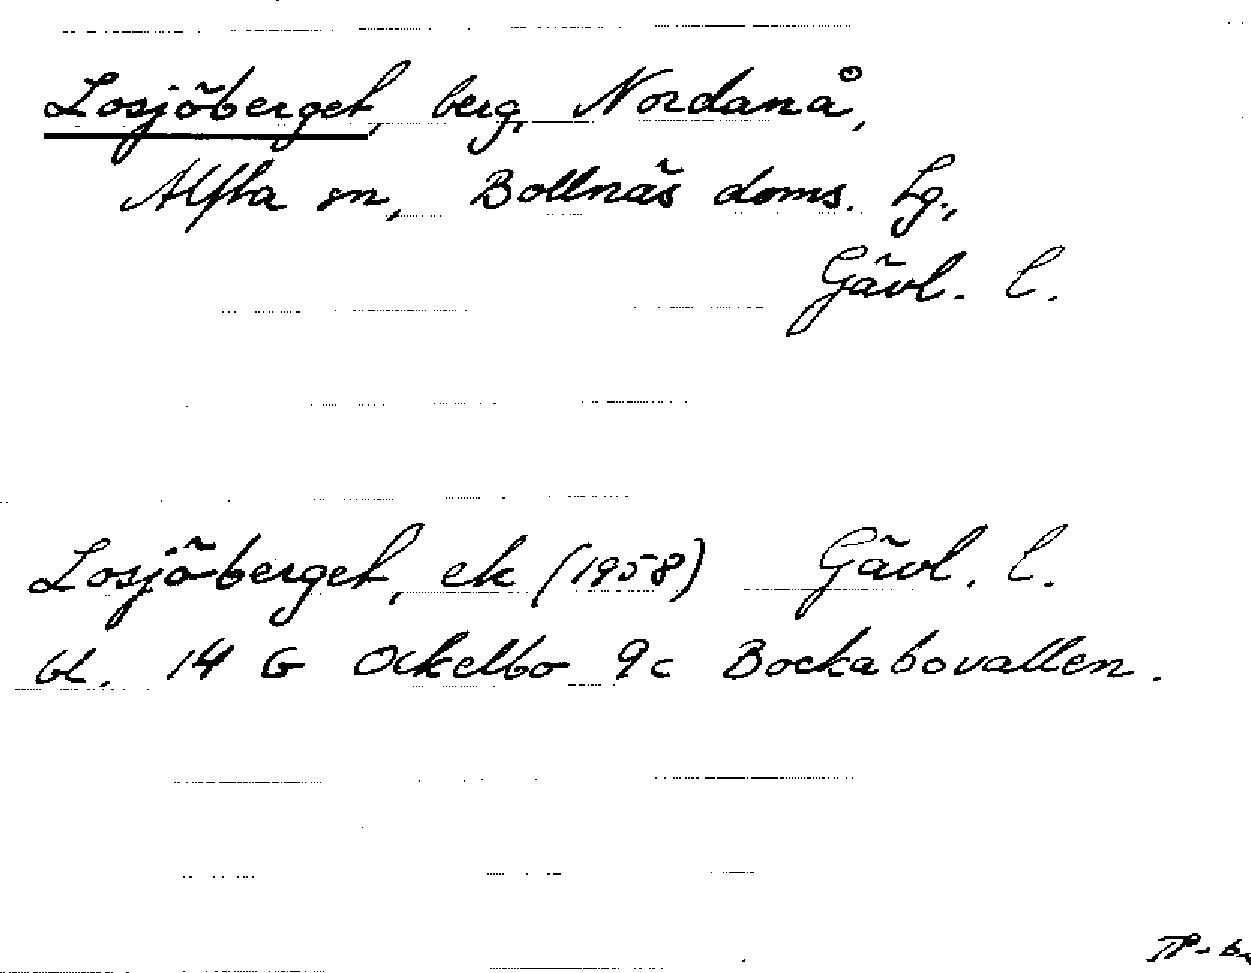 Losjöberget, berg, Nordanå,
Alfta sn, Bollnäs doms. Lg.,
Gävl. l.
Losjöberget, ek (1958) Gävl. l.
bl. 14 G Ockelbo 9c Bockabovallen.